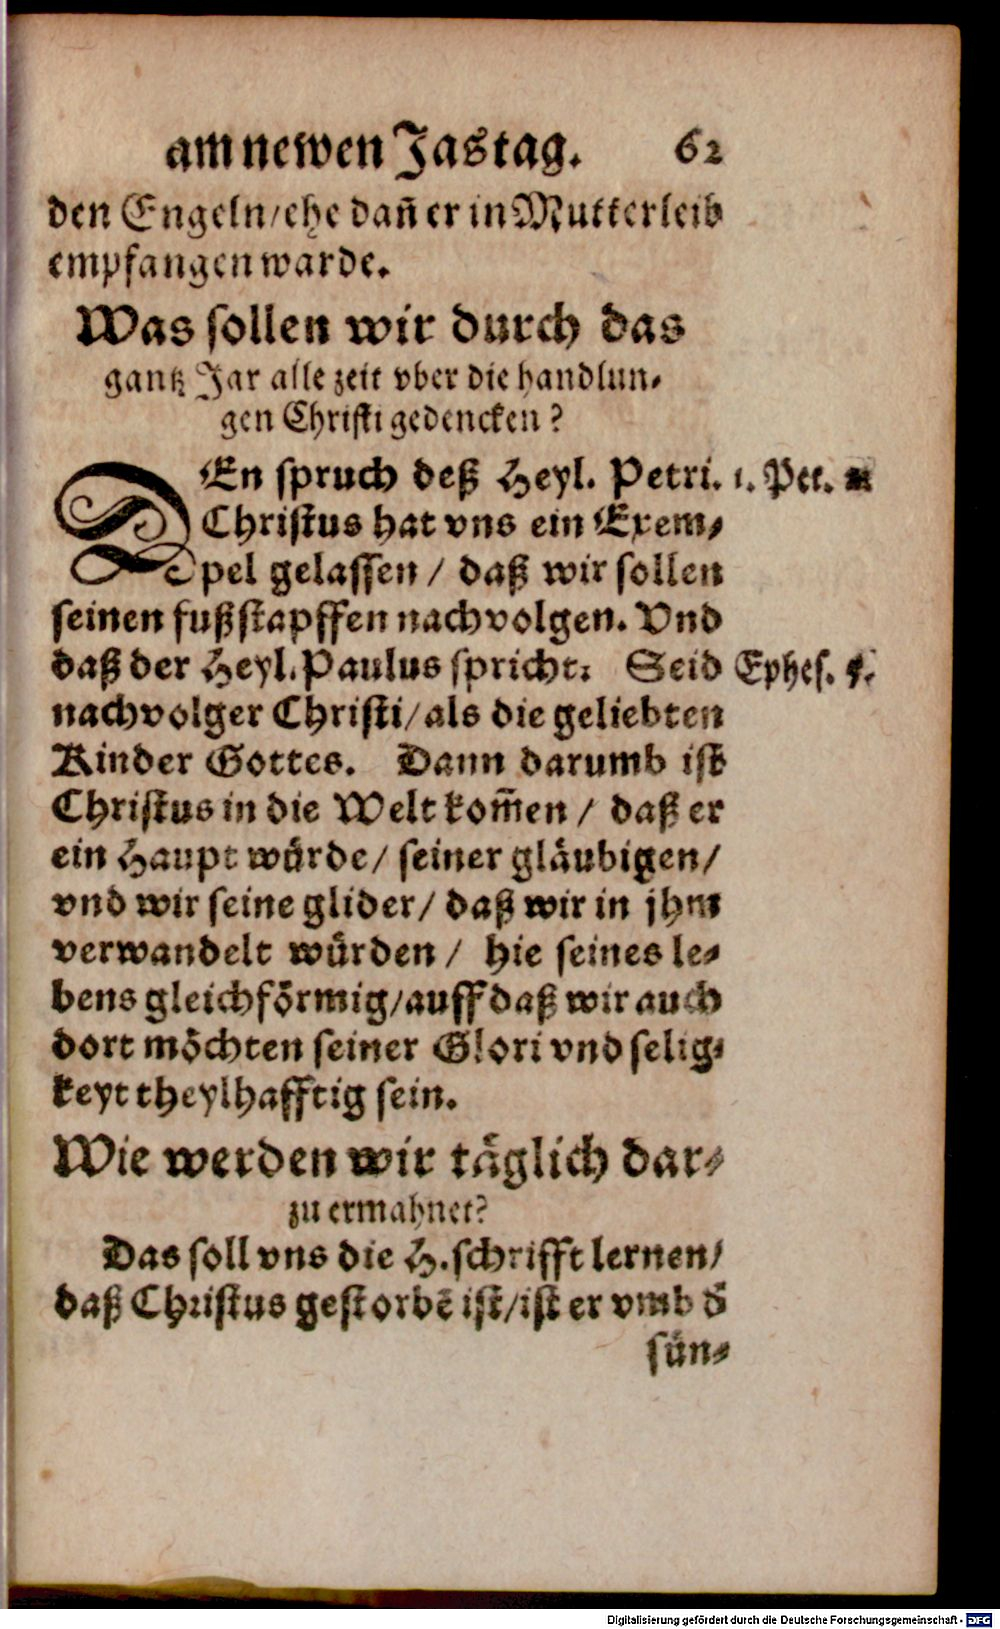 am newen Jastag. 62
den Engeln/ehe dañ er in Mutterleib
empfangen warde.
Was sollen wir durch das
gantz Jar alle zeit vber die handlun-
gen Christi gedencken?
DEn spruch deß Heyl. Petri. 1. Pet. 2
Christus hat vns ein Exem-
pel gelassen / daß wir sollen
seinen fußstapffen nachvolgen. Vnd
daß der Heyl. Paulus spricht: Seid Ephes. 5.
nachvolger Christi/als die geliebten
Kinder Gottes. Dann darumb ist
Christus in die Welt kom̃en / daß er
ein Haupt würde/ seiner gläubigen/
vnd wir seine glider/ daß wir in jhm
verwandelt würden / hie seines le-
bens gleichförmig/auff daß wir auch
dort möchten seiner Glori vnd selig-
keyt theylhafftig sein.
Wie werden wir täglich dar-
zu ermahnet?
Das soll vns die H. schrifft lernen/
daß Christus gestorbē ist/ist er vmb d̄
sün-
Digitalisierung gefördert durch die Deutsche Forschungsgemeinschaft - DFG